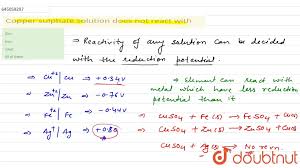 645059287
Copper sulphate solution does not react with
⇒ Reactivity of any solution can be decided
with the reduction potential.
⇒ Cu⁺²| Cu ⇒ +0.34V
⇒ Zn⁺²| Zn ⇒ -0.76V
⇒ Fe⁺²| Fe ⇒ -0.44V
⇒ Ag⁺| Ag ⇒ +0.80
⇒ element can react with
metal which have less reduction
potential than it
⇒ CuSO₄ + Fe(s) → FeSO₄ + Cu(s)
⇒ CuSO₄ + Zn(s) → ZnSO₄ + Cu(s)
CuSO₄ + Ag(s) → No rxn.
doubtnut